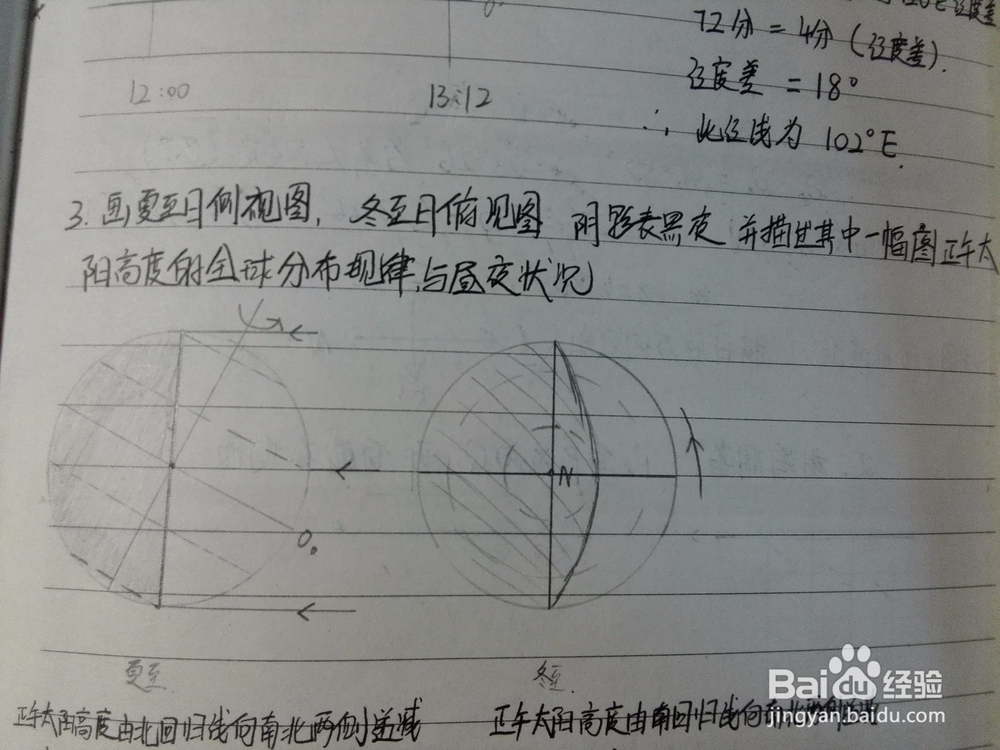 120°E经度差
72分 = 4分 (经度差).
经度差 = 18°
∴ 此经线为 102°E.
12:00
13:12
3. 画夏至日侧视图, 冬至日俯视图 阴影表黑夜 并描述其中一幅图正午太
阳高度的全球分布规律与昼夜状况
N
0°
夏至
冬至
正午太阳高度由北回归线向南北两侧递减
正午太阳高度由南回归线向南北两侧递减
Baidu 经验
jingyan.baidu.com